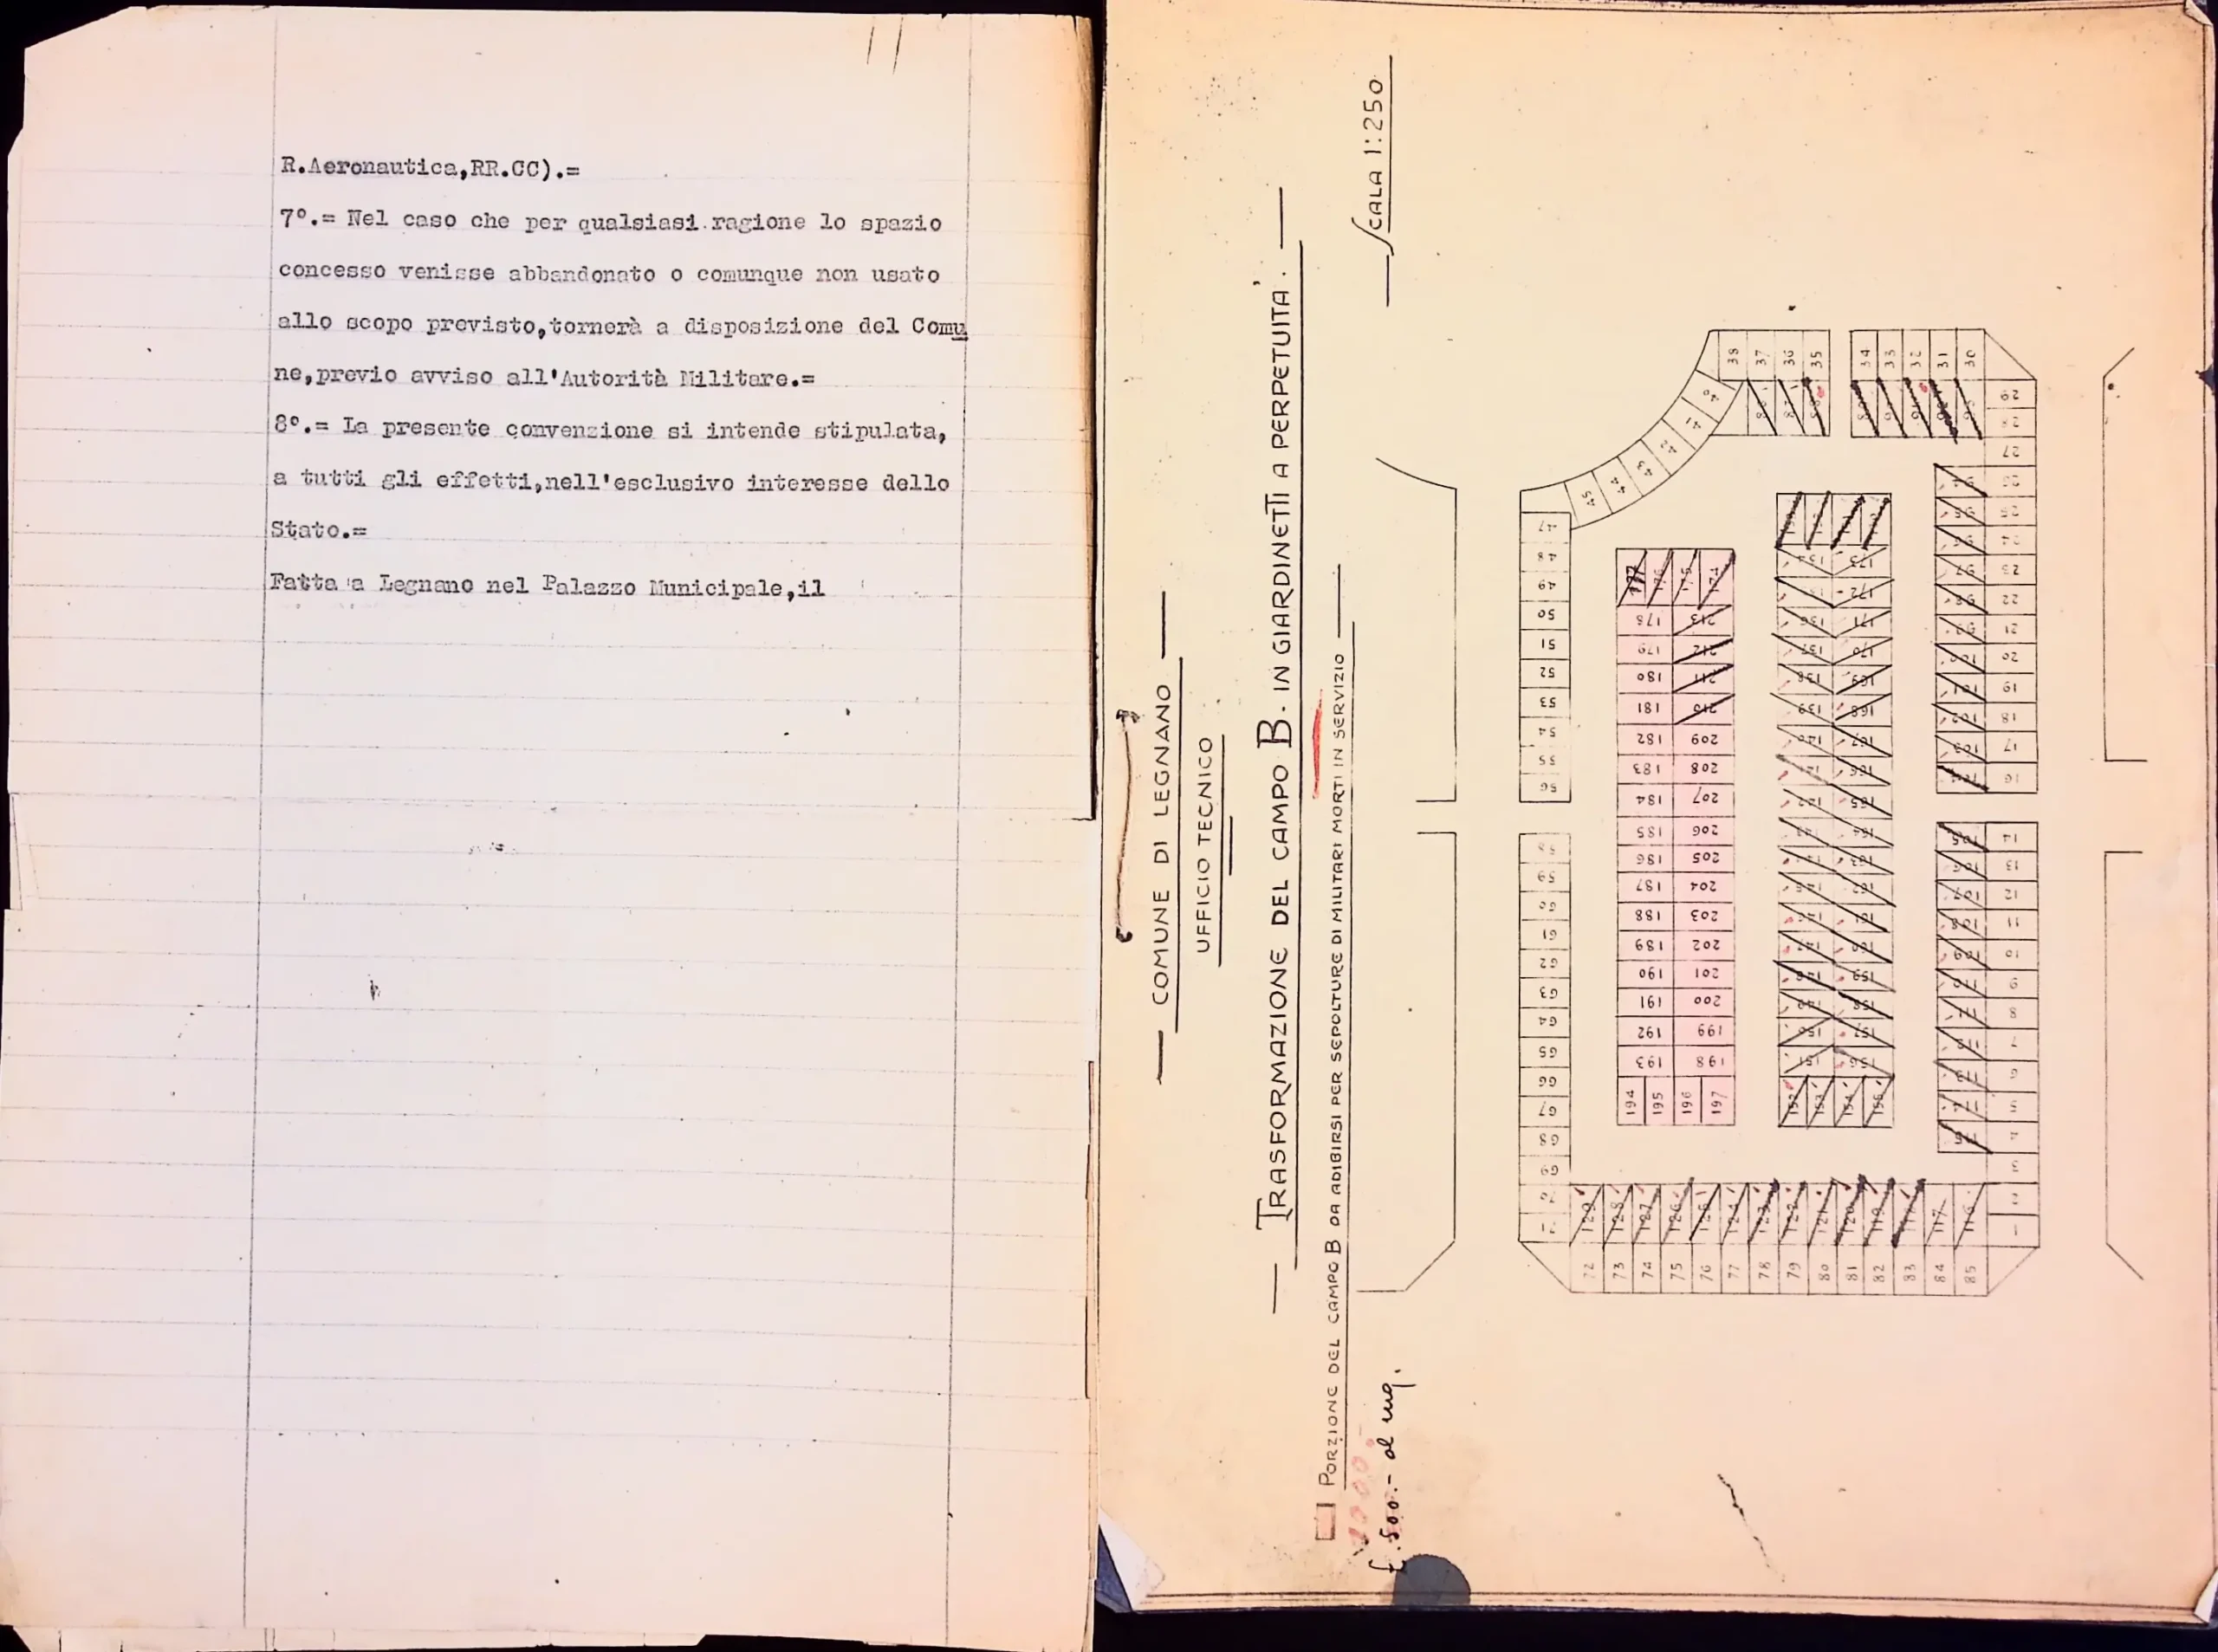 R.Aeronautica,RR.CC).=
7°.= Nel caso che per qualsiasi ragione lo spazio
concesso venisse abbandonato o comunque non usato
allo scopo previsto,tornerà a disposizione del Comu
ne,previo avviso all'Autorità Militare.=
8°.= La presente convenzione si intende stipulata,
a tutti gli effetti,nell'esclusivo interesse dello
Stato.=
Fatta a Legnano nel Palazzo Municipale,il
COMUNE DI LEGNANO
UFFICIO TECNICO
TRASFORMAZIONE DEL CAMPO B. IN GIARDINETTI A PERPETUITA'.
PORZIONE DEL CAMPO B DA ADIBIRSI PER SEPOLTURE DI MILITARI MORTI IN SERVIZIO
SCALA 1:250
£.500.- al mq.
38 37 36 35
34 33 32 31 30
29 28 27 26 25 24 23 22 21 20 19 18 17 16
14 13 12 11 10 9 8 7 6 5 4 3 2 1
45 44 43 42 41
47 48 49 50 51 52 53 54 55 56
58 59 60 61 62 63 64 65 66 67 68 69
72 73 74 75 76 77 78 79 80 81 82 83 84 85
177 176 175 174
178 213
179 212
180 211
181 210
182 209
183 208
184 207
185 206
186 205
187 204
188 203
189 202
190 201
191 200
192 199
193 198
194 195 196 197
173
172
171
170
169
168
167
166
165
129 128 127 126 125 124 123 122 121 120 119 117 116